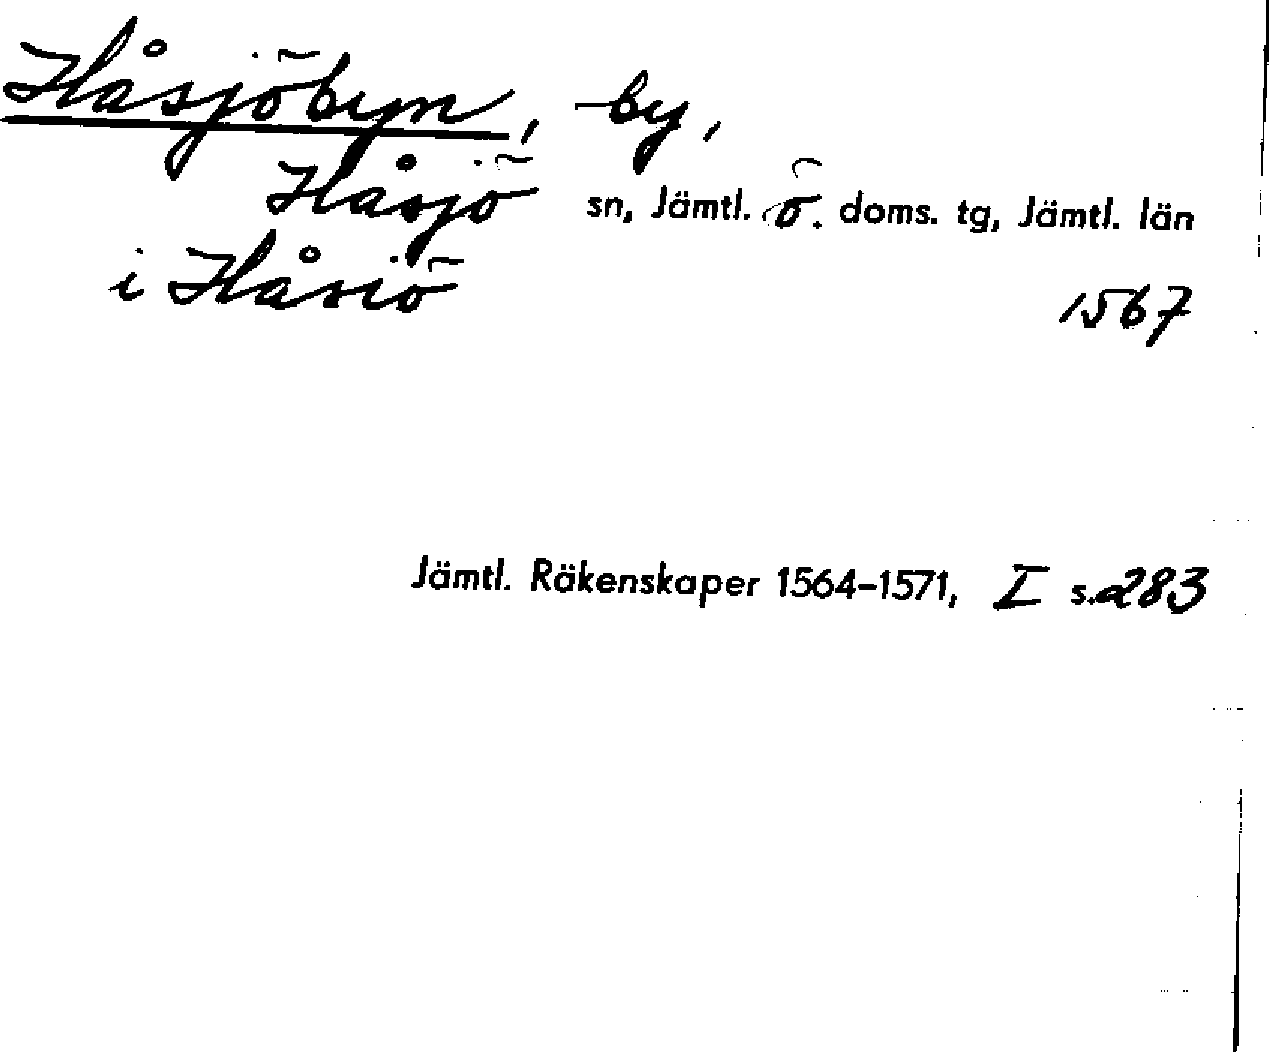 Håsjöbyn, by,
Håsjö sn, Jämtl. ö. doms. tg, Jämtl. län
i Håsiö
1567
Jämtl. Räkenskaper 1564–1571, I s. 283